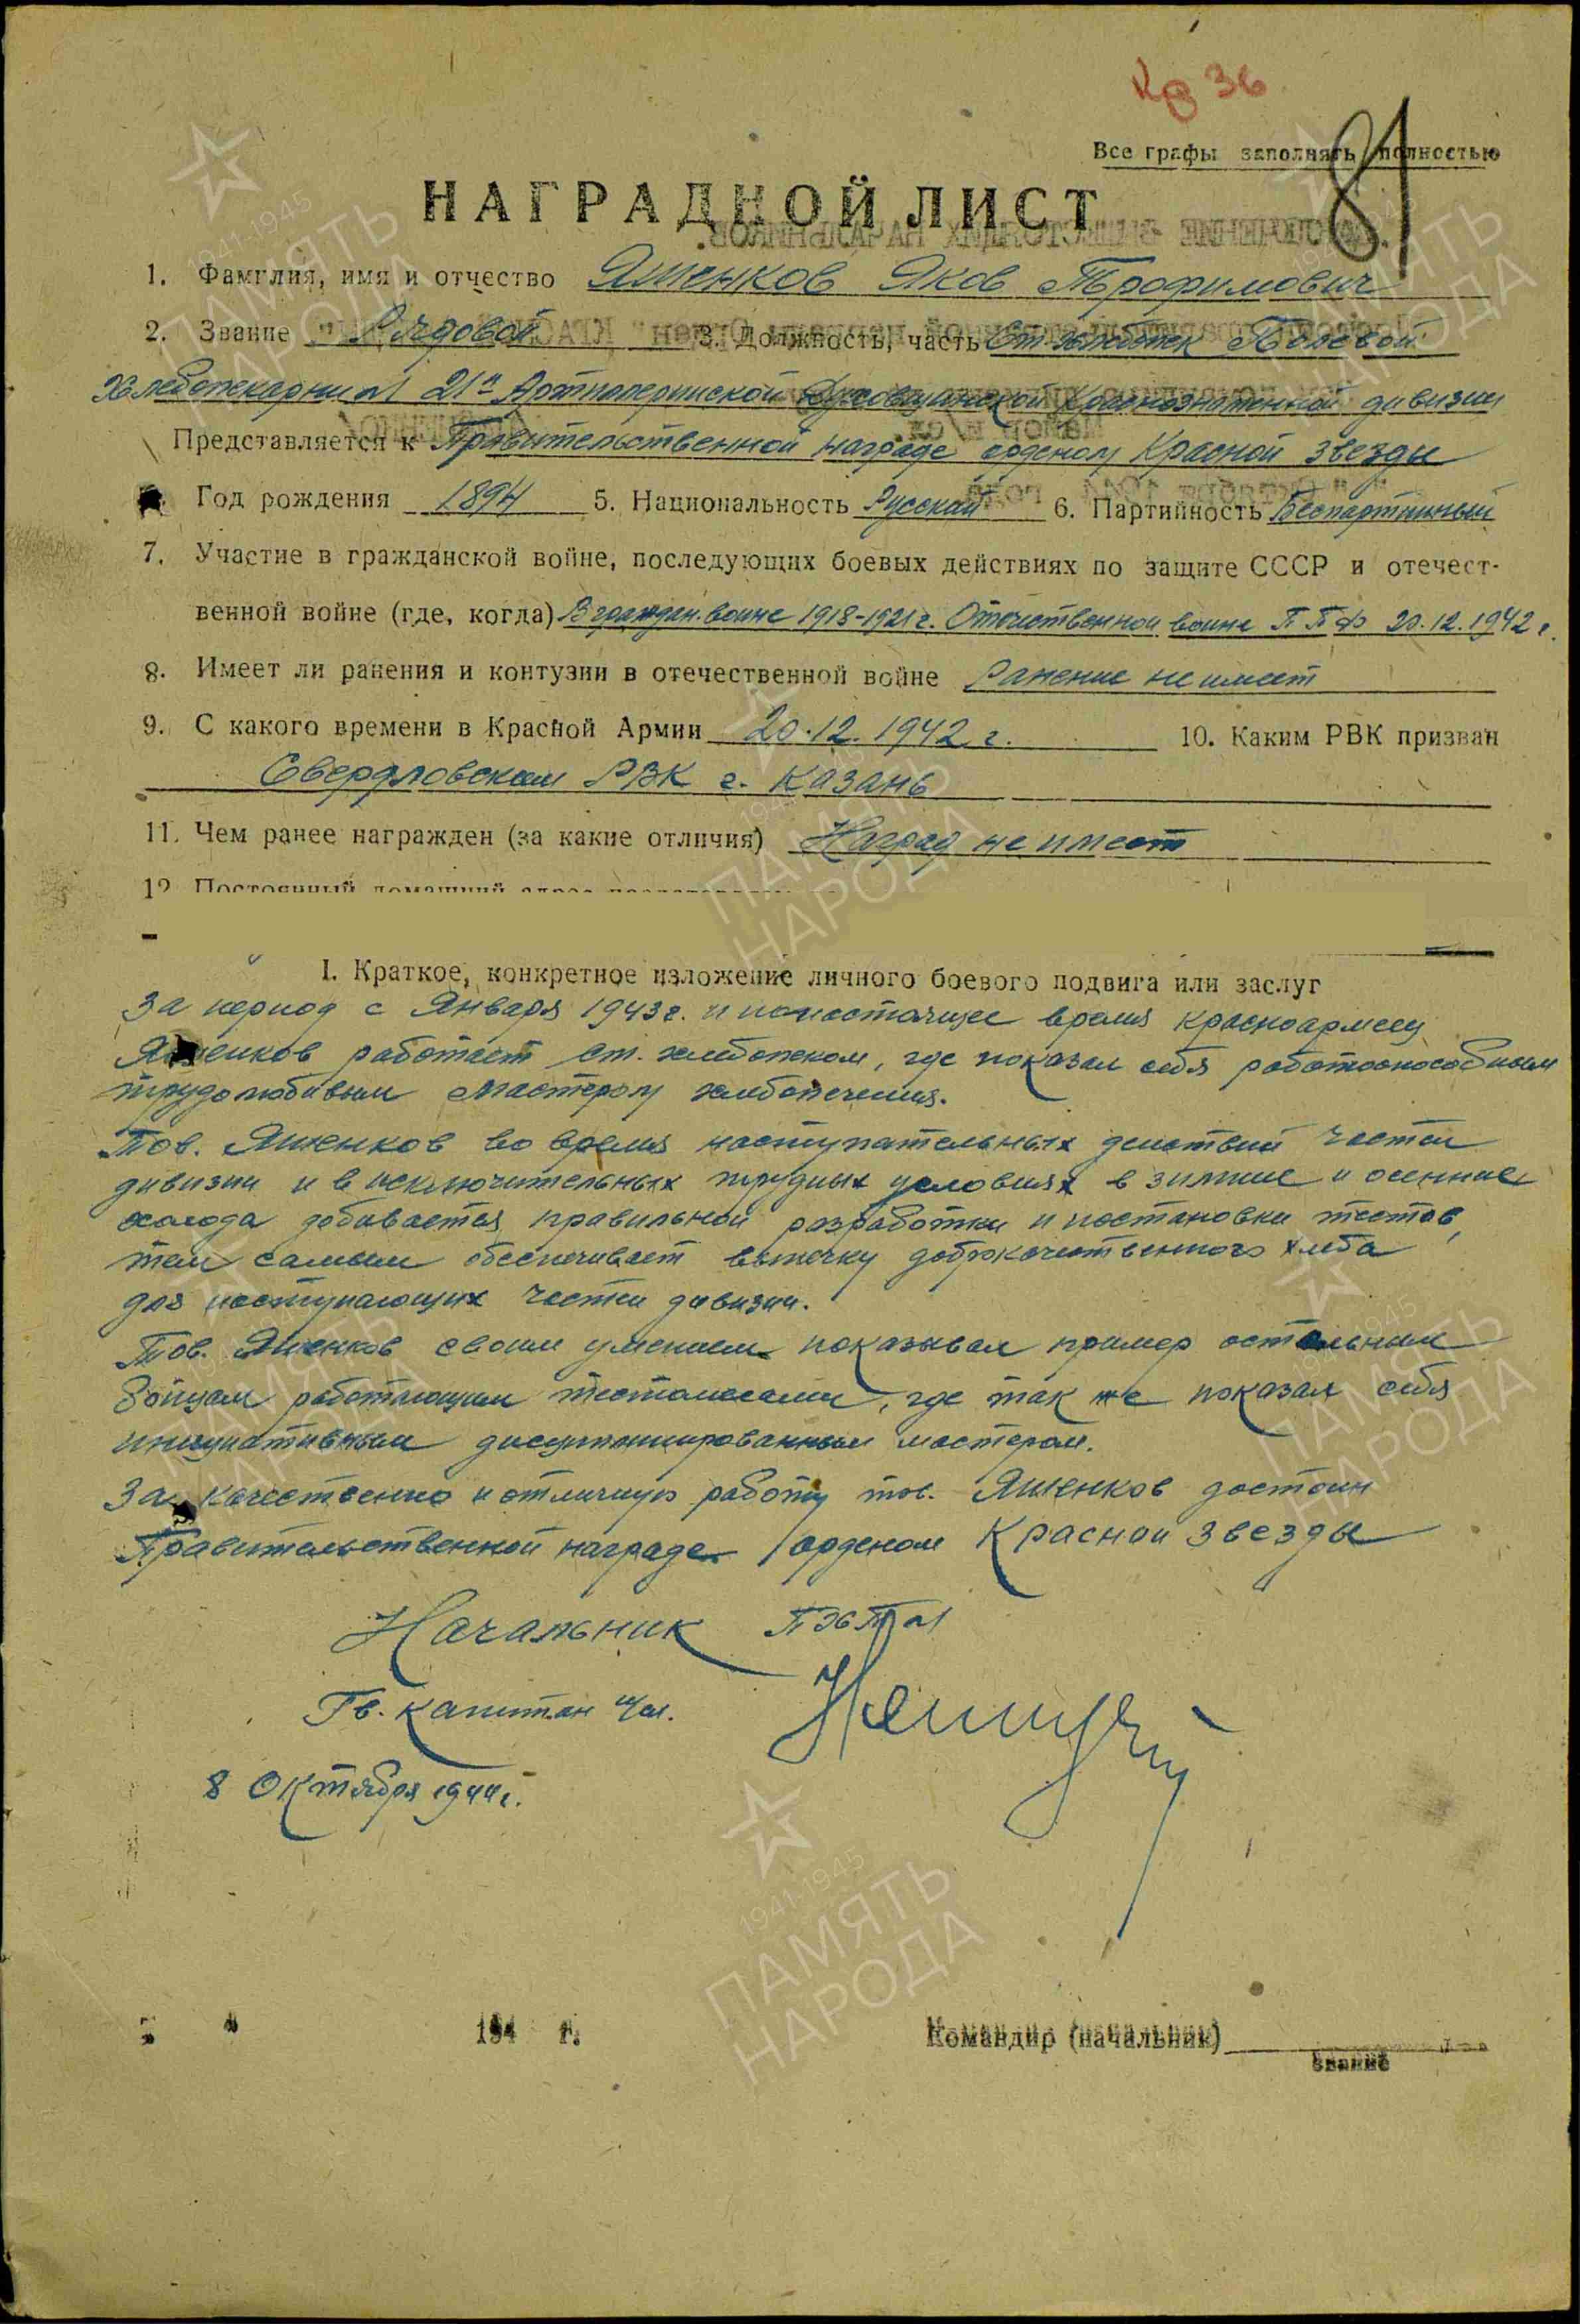 Кр 36
81
Все графы заполнять полностью
НАГРАДНОЙ ЛИСТ
1. Фамилия, имя и отчество Яшенков Яков Трофимович
2. Звание Рядовой 3. Должность, часть Ст. хлебопек Полевой
хлебопекарни 21й Артиллерийской Духовщинской Краснознаменной дивизии
Представляется к Правительственной награде орденом Красной Звезды
Год рождения 1894 5. Национальность Русский 6. Партийность Беспартийный
7. Участие в гражданской войне, последующих боевых действиях по защите СССР и отечест-
венной войне (где, когда) В граждан. войне 1918-1921 г. Отечественной войне 20.12.1942 г.
8. Имеет ли ранения и контузии в отечественной войне Ранение не имеет
9. С какого времени в Красной Армии 20.12.1942 г. 10. Каким РВК призван
Свердловским РВК г. Казань
11. Чем ранее награжден (за какие отличия) Наград не имеет
12 Постоянный домашний адрес
I. Краткое, конкретное изложение личного боевого подвига или заслуг
За период с Января 1943 г. и по настоящее время красноармеец
Яшенков работает ст. хлебопеком, где показал себя работоспособным
трудолюбивым мастером хлебопечения.
Тов. Яшенков во время наступательных действий частей
дивизии и в исключительных трудных условиях в зимние и осенние
холода добивается правильной разработки и постановки тестов,
тем самым обеспечивает выпечку доброкачественного хлеба
для наступающих частей дивизии.
Тов. Яшенков своим умением показывал пример остальным
бойцам работающим тестомесами, где так же показал себя
инициативным дисциплинированным мастером.
За качественно и отличную работу тов. Яшенков достоин
Правительственной награде орденом Красной Звезды
Начальник
Гв. капитан
8 Октября 1944 г.
194 г.
Командир (начальник)
звание
1941-1945
ПАМЯТЬ
НАРОДА